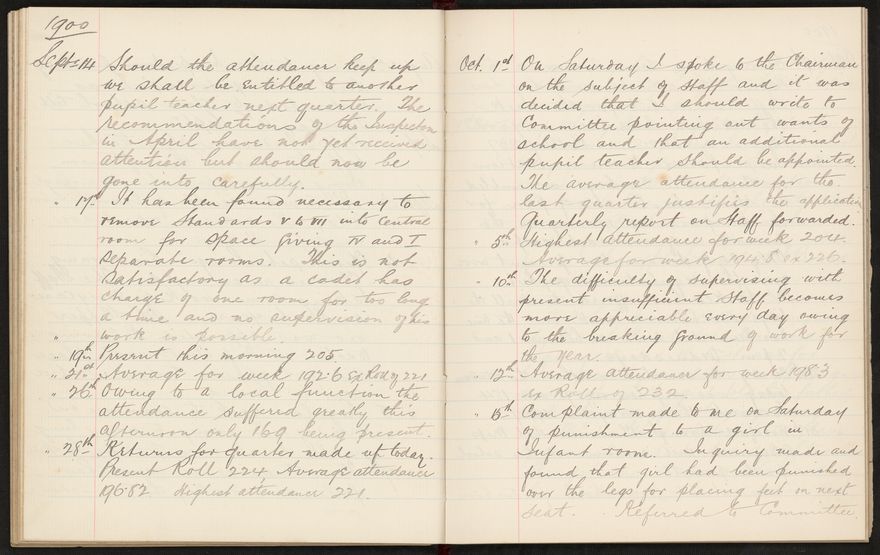 1900
Sept 14 Should the attendance keep up
we shall be entitled to another
pupil teacher next quarter. The
recommendations of the Inspector
in April have not yet received
attention but should now be
gone into carefully.
" 17th It has been found necessary to
remove Standards V to VII into Central
room for space giving IV and I
separate rooms. This is not
satisfactory as a cadet has
charge of one room for too long
a time and no supervision of his
" work is possible.
" 19th Present this morning 205
" 21st Average for week 192.6 Ex Roll of 221
" 26th Owing to a local function the
attendance suffered greatly this
afternoon only 169 being present.
" 28th Returns for quarter made up today.
Present Roll 224. Average attendance
196.82 Highest attendance 221.
Oct. 1st On Saturday I spoke to the Chairman
on the subject of Staff and it was
decided that I should write to
Committee pointing out wants of
school and that an additional
pupil teacher should be appointed.
The average attendance for the
last quarter justifies the application
Quarterly report on Staff forwarded.
" 5th Highest attendance for week 204.
Average for week 194.8 ex 226.
" 10th The difficulty of supervising with
present insufficient Staff becomes
more appreciable every day owing
to the breaking ground of work for
the year.
" 12th Average attendance for week 198.3
ex Roll of 232.
" 15th Complaint made to me on Saturday
of punishment to a girl in
Infant room. Inquiry made and
found that girl had been punished
over the legs for placing feet on next
seat. Referred to Committee.